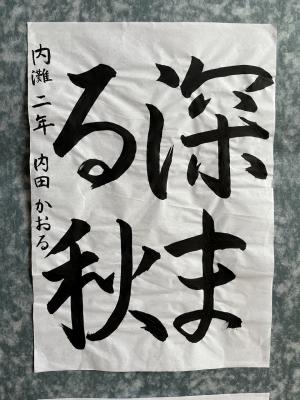 深ま
る秋
内灘 二年 内田 かおる